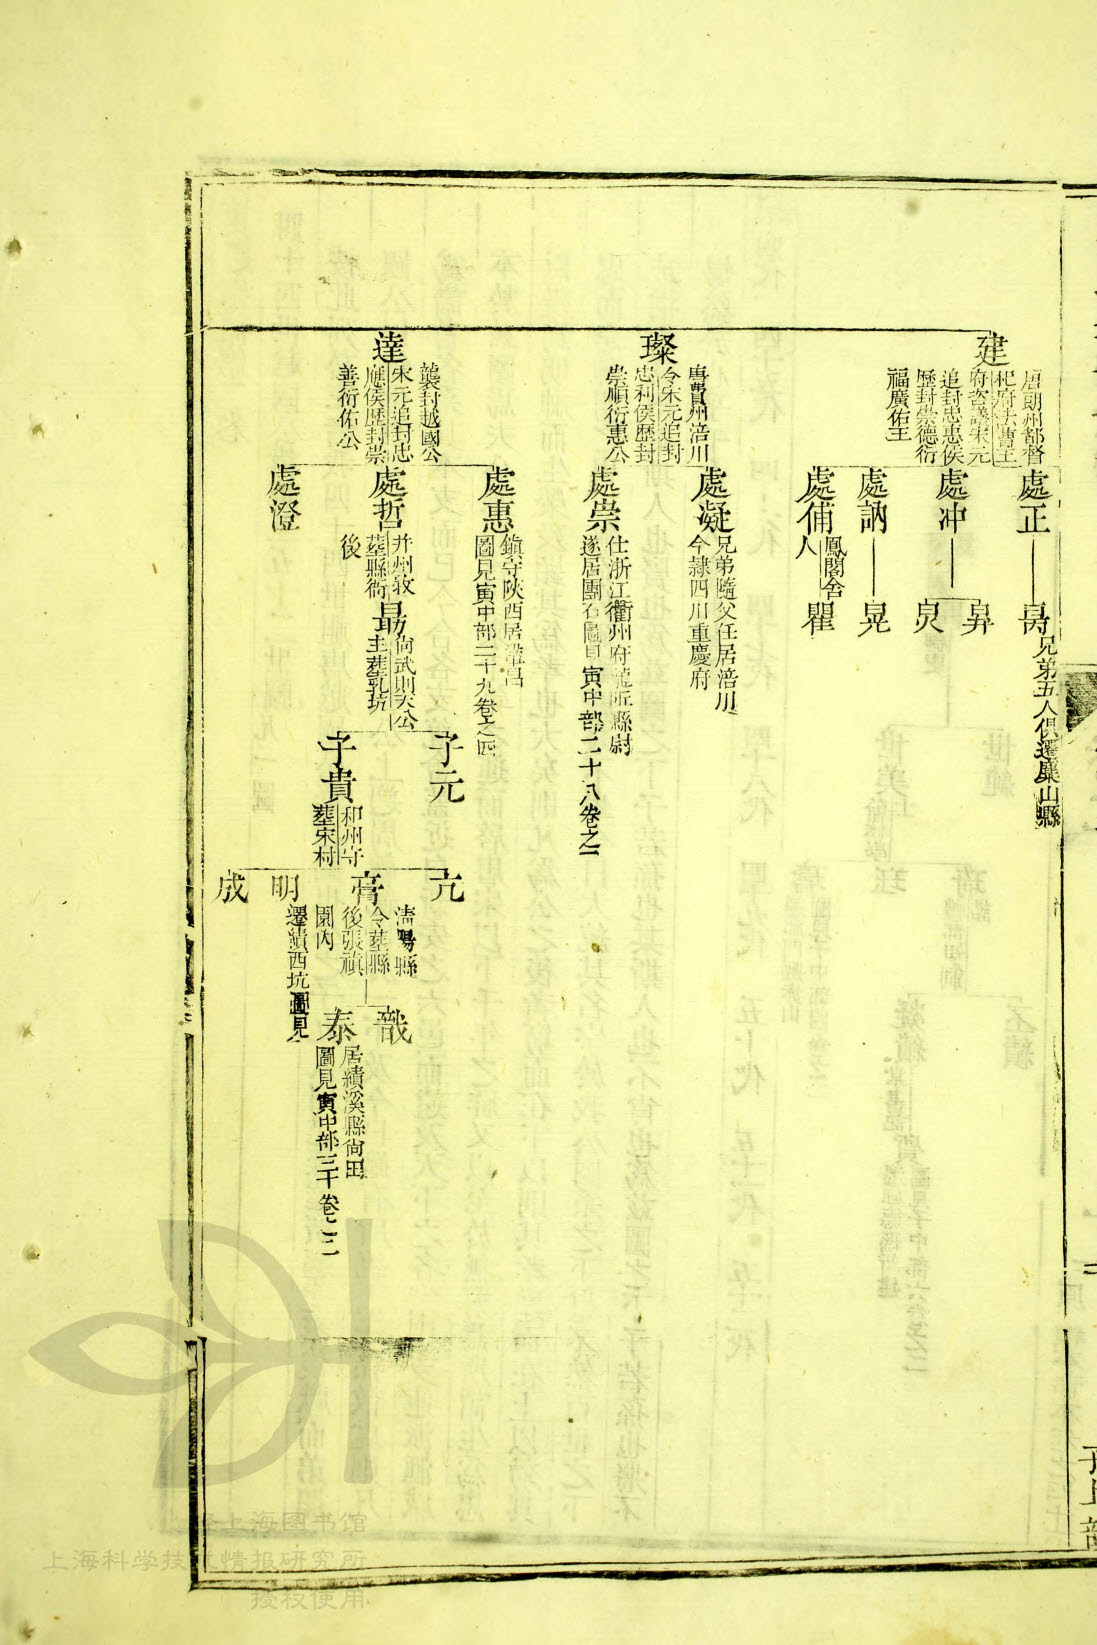 建
唐朗州都督
杞府法曹王
府咨議宋元
追封忠惠侯
歷封崇德衍
福廣佑王
璨
唐費州涪川
令宋元追封
忠利侯歷封
崇順衍惠公
達
襲封越國公
宋元追封忠
應侯歷封崇
善衍佑公
處正
兄弟五人俱遷麋山縣
處冲
昇
炅
處訥
晃
處俌
鳳閣舍
人
瞿
處凝
兄弟隨父任居涪川
今隷四川重慶府
處崇
仕浙江衢州府龍丘縣尉
遂居團石圖見寅中部二十八卷之一
處惠
鎮守陝西居灘昌
圖見寅中部二十九卷之四
處哲
并州牧
塟縣衙
後
處澄
最
尙武則天公
主塟乳坑
子元
子貴
和州守
塟宋村
亢
膏
清陽縣
令塟縣
後張禛
園內
明
遷績西坑圖見
成
戩
泰
居績溪縣尙田
圖見寅中部三十卷之二
上海图书馆
上海科学技术情报研究所
授权使用